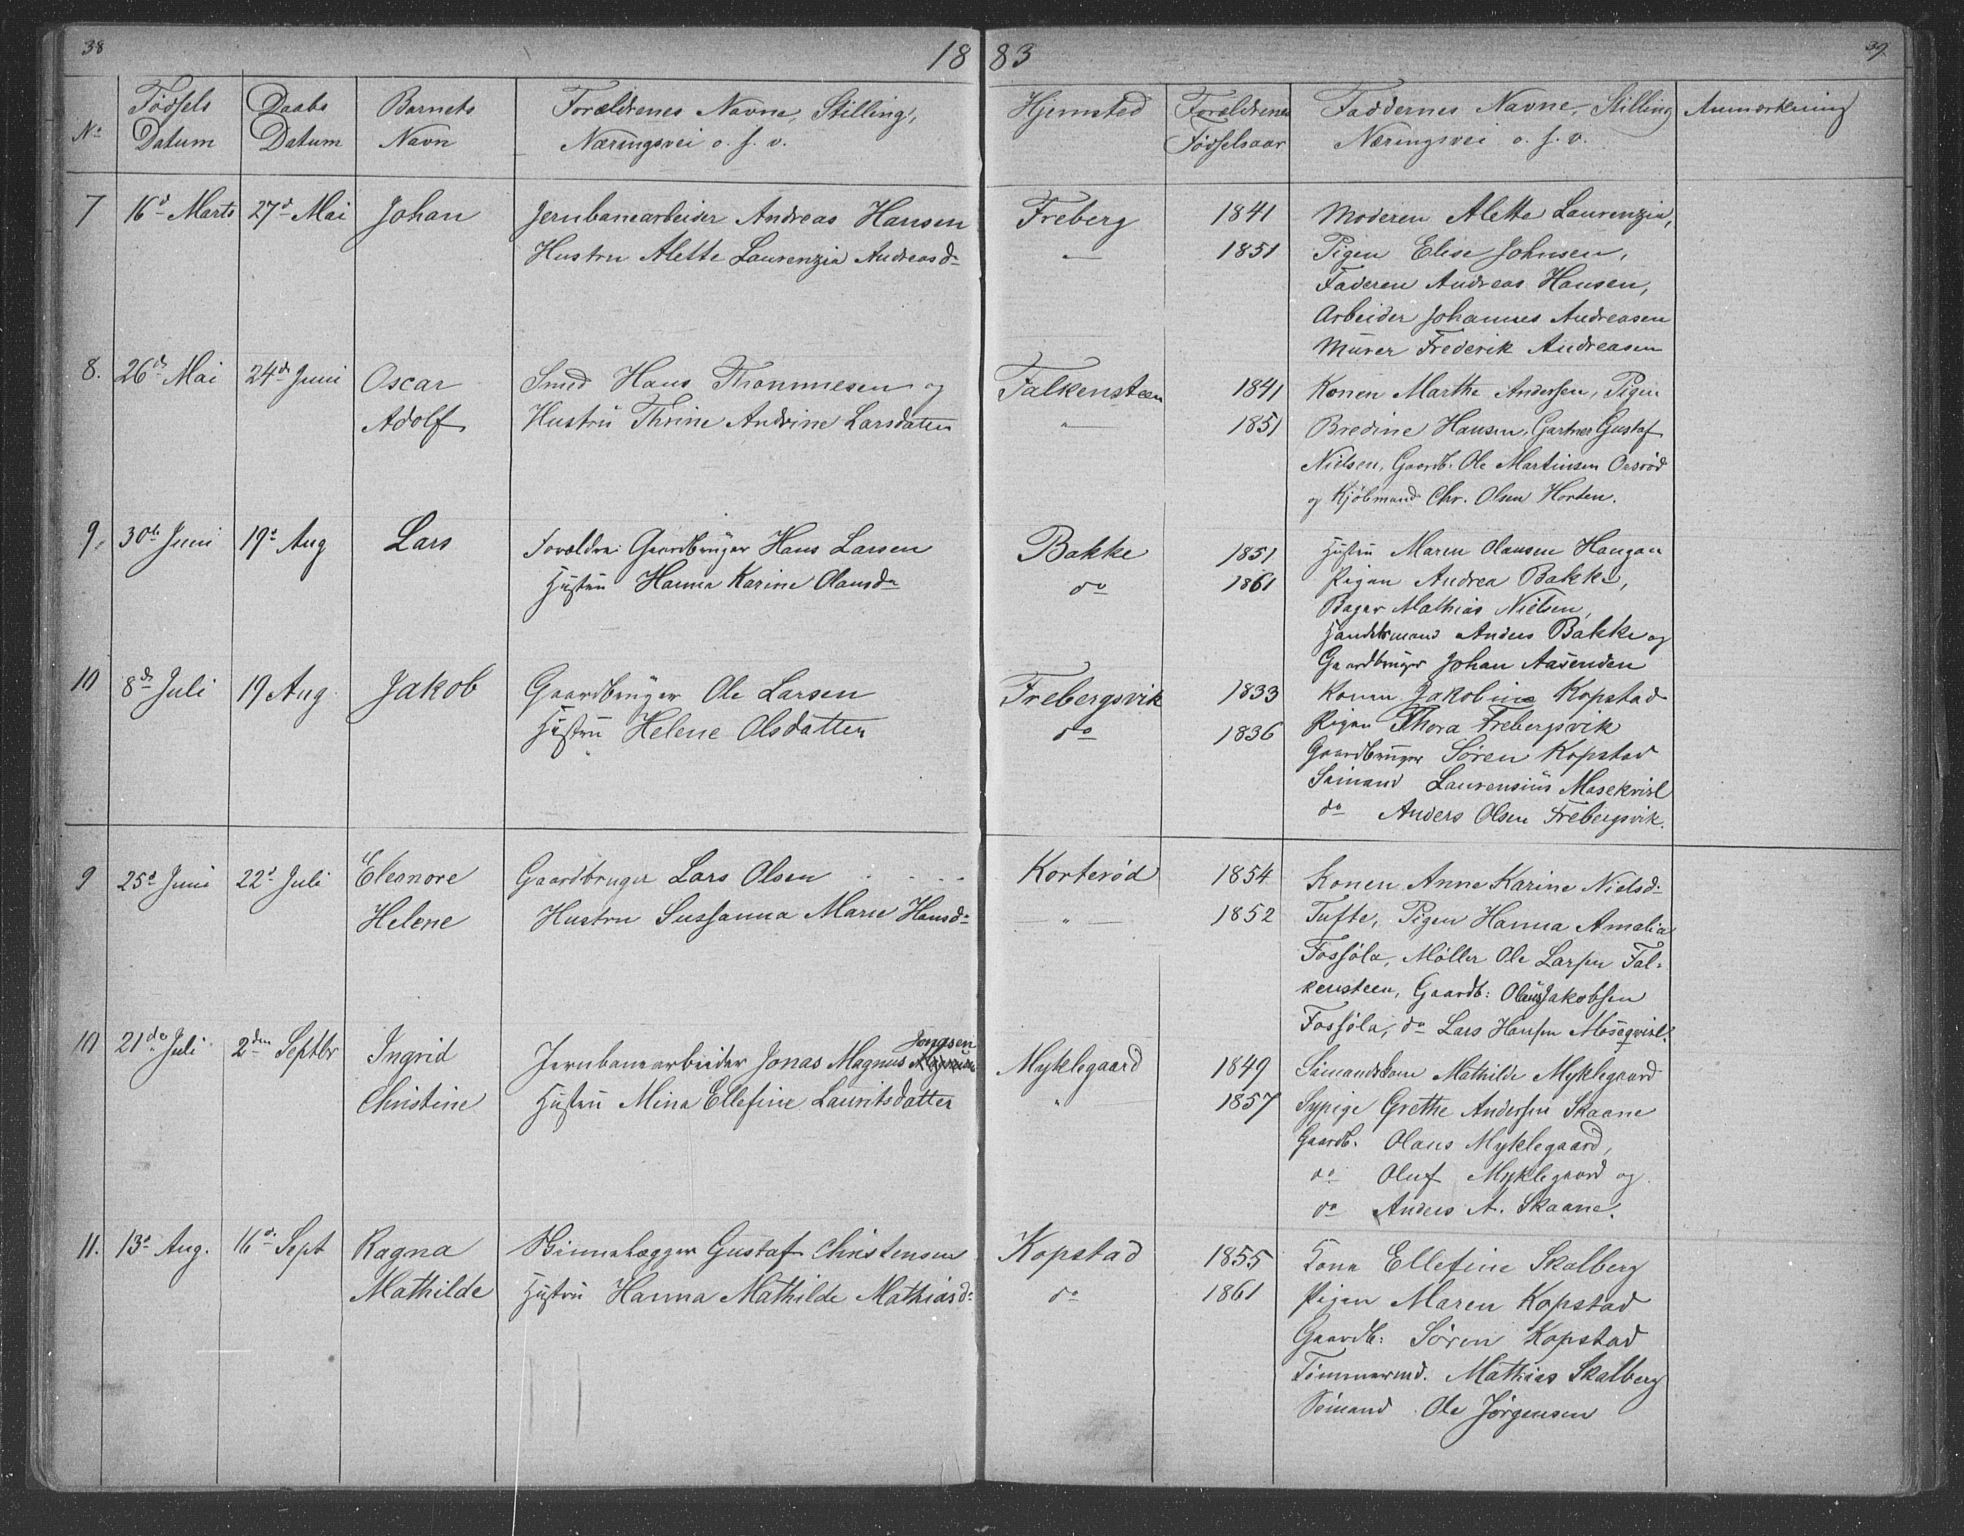 38
1883
39.
No
Fødsels Datum
Daabs Datum
Barnets Navn
Forældrenes Navne, Stilling, Næringsvei o. s. v.
Hjemsted
Forældrenes Fødselsaar
Faddernes Navne, Stilling Næringsvei o. s. v.
Anmærkning
7 16d Marts 27d Mai Johan Jernbanearbeider Andreas Hansen Freberg 1841 Moderen Alette Laurenzia,
Hustru Alette Laurenzia Andreasd. — 1851 Pigen Elise Johnsen,
Faderen Andreas Hansen,
Arbeider Johannes Andreasen
Murer Frederik Andreasen
8. 26de Mai 24de Juni Oscar Smed Hans Thommesen og Falkensteen 1841 Konen Marthe Anderssen, Pigen
Adolf Hustru Thrine Andrine Larsdatter — 1851 Bredine Hansen, Gartner Gustaf
Nielsen, Gaardb. Ole Martinsen Orsrød
og Kjøbmand Chr. Olsen Horten.
9. 30de Juni 19d Aug Lars Forældre: Gaardbruger Hans Larsen Bakke 1851 Hustru Maren Olausen Haugan
Hustru Hanna Karine Olausd. do 1861 Pigen Andrea Bakke,
Bager Mathias Nielsen,
Handelsmand Anders Bakke og
Gaardbruger Johan Aasenden
10 8de Juli 19 Aug Jakob Gaardbruger Ole Larsen Frebergsvik 1833 Konen Jakobine Kopstad
Hustru Helene Olsdatter do 1836 Pigen Thora Frebergsvik
Gaardbruger Søren Kopstad
Sømand Laurensius Masekvisl
do Anders Olsen Frebergsvik.
9 25d Juni 22d Juli Eleonore Gaardbruger Lars Olsen Korterød 1854 Konen Anne Karine Nielsd.
Helene Hustru Sussanna Marie Hansd. — 1852 Tufte, Pigen Hanna Amalia
Fossøla, Møller Ole Larsen Fal-
kensteen, Gaardb: Olaus Jakobsen
Fossøla, do Lars Hansen Moseqvisl.
10 21de Juli 2den Septbr Ingrid Jernbanearbeider Jonas Magnus Jonasen Myklegaard 1849 Sømandskone Mathilde Myklegaard
Christine Hustru Mina Ellefine Lauritsdatter " 1857 Sypige Grethe Andersen Skaane
Gaardb. Olaus Myklegaard,
do Oluf Myklegaard og
do Anders A. Skaane.
11. 13d Aug. 16d Sept Ragna Gustaf Christensen Kopstad 1855 Kone Ellefine Skalberg
Mathilde Hustru Hanna Mathilde Mathiasd. do 1861 Pigen Maren Kopstad
Gaardb: Søren Kopstad
Tømmermd. Mathias Skalberg
Sømand Ole Jørgensen